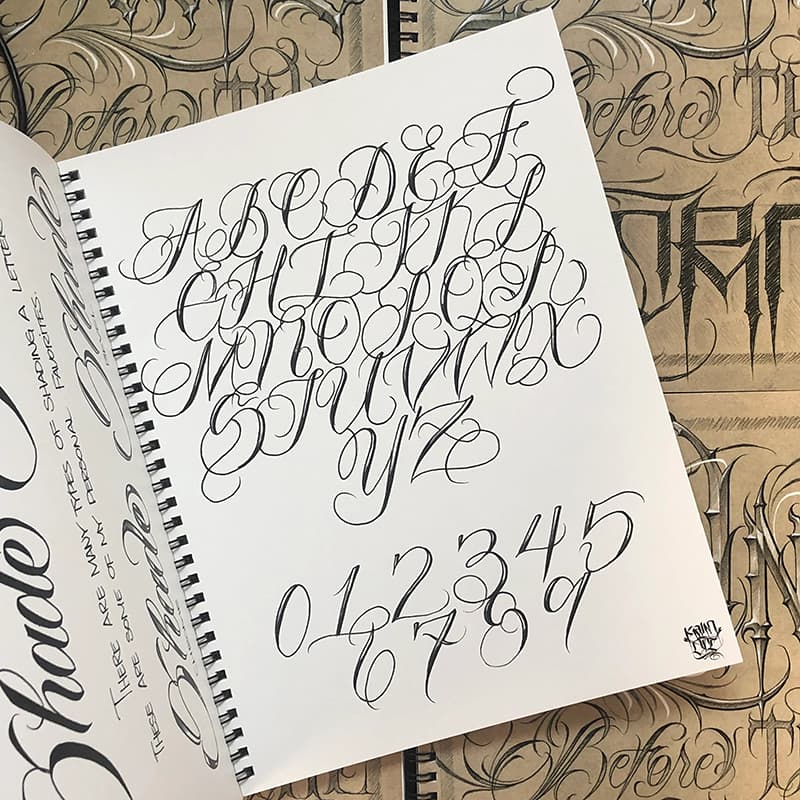 Before
Before
A B C D E F
G H I J K L
M N O P Q R
S T U V W X
Y Z
0 1 2 3 4 5
6 7 8 9
Shade
THERE ARE MANY TYPES OF SHADING A LETTER
THESE ARE SOME OF MY PERSONAL FAVORITES.
Shade
Shade
Before